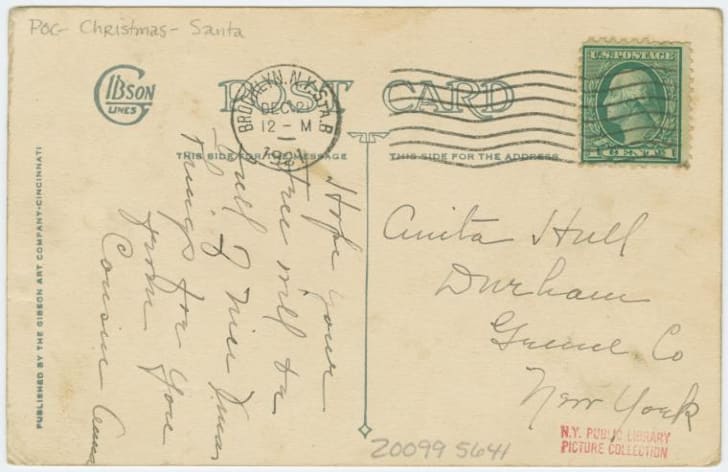 POC- Christmas- Santa
GIBSON
LINES
POST CARD
BROOKLYN. N.Y. STA. B
DEC 21
12 - M
U.S. POSTAGE
1 CENT 1
THIS SIDE FOR THE MESSAGE
THIS SIDE FOR THE ADDRESS
PUBLISHED BY THE GIBSON ART COMPANY-CINCINNATI
Hope your
tree will be
full of nice Xmas
things for you
from
Cousin
Anita Hull
Durham
Greene Co
New York
N.Y. PUBLIC LIBRARY
PICTURE COLLECTION
20099 5641